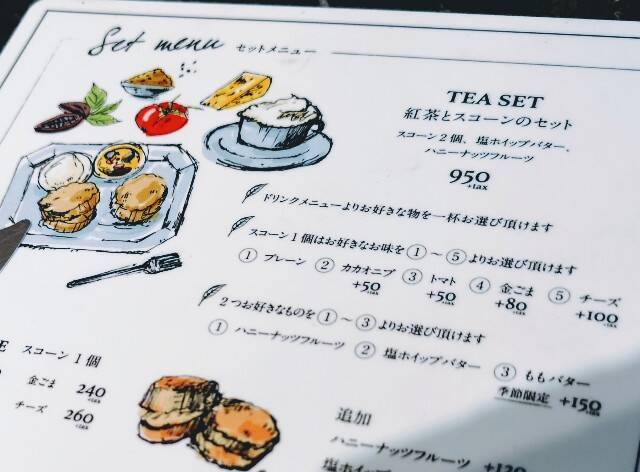 Set menu セットメニュー
TEA SET
紅茶とスコーンのセット
スコーン2個、塩ホイップバター、
ハニーナッツフルーツ
950
+tax
ドリンクメニューよりお好きな物を一杯お選び頂けます
スコーン1個はお好きなお味を①～⑤よりお選び頂けます
① プレーン ② カカオニブ ③ トマト ④ 金ごま ⑤ チーズ
+50 +50 +80 +100
+tax +tax +tax +tax
2つお好きなものを①～③よりお選び頂けます
① ハニーナッツフルーツ ② 塩ホイップバター ③ ももバター
季節限定 +150
+tax
E スコーン1個
金ごま 240
+tax
チーズ 260
+tax
追加
ハニーナッツフルーツ +120
塩ホイップバター